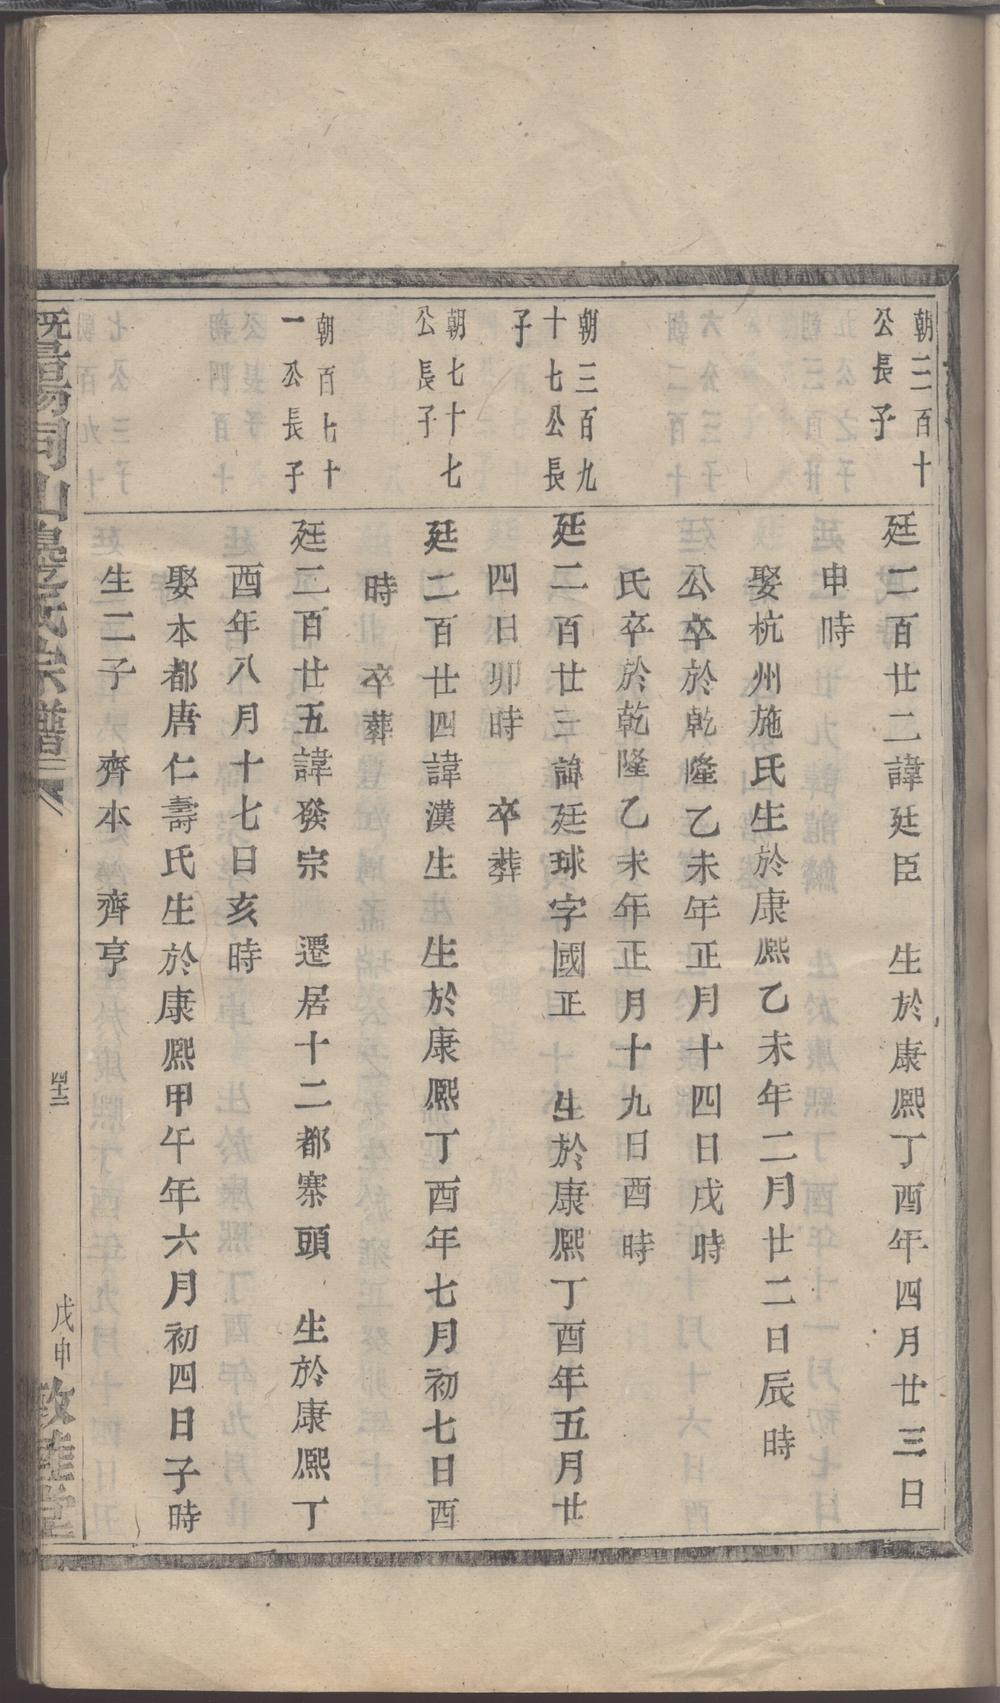 朝三百十
公長子
廷二百廿二諱廷臣　生於康熙丁酉年四月廿三日
申時
娶杭州施氏生於康熙乙未年二月廿二日辰時
公卒於乾隆乙未年正月十四日戌時
氏卒於乾隆乙未年正月十九日酉時
朝三百九
十七公長
子
廷二百廿三諱廷球字國正　生於康熙丁酉年五月廿
四日卯時　卒葬
朝七十七
公長子
廷二百廿四諱漢生　生於康熙丁酉年七月初七日酉
時　卒葬
朝百七十
一公長子
廷二百廿五諱發宗　遷居十二都寨頭　生於康熙丁
酉年八月十七日亥時
娶本都唐仁壽氏生於康熙甲午年六月初四日子時
生二子　齊本　齊亨
暨陽同山邊氏宗譜
四十三
戊申
敦睦堂